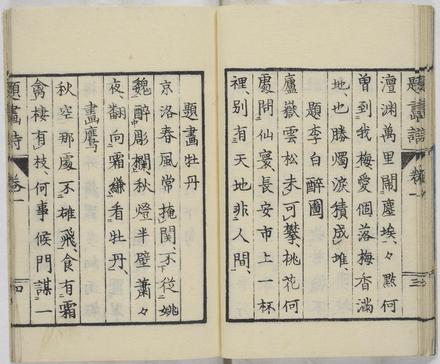 題畫詩 卷一 三
澶渊萬里閙塵埃、々點何
曽到我梅、愛個落梅香滿
地、也勝燭淚積成堆
題李白醉圖
廬嶽雲松未可攀、桃花何
處問仙寰、長安市上一杯
裡、別有天地非人間、
題畫牡丹
京洛春風常掩関、不從姚
魏醉彫欄、秋燈半壁蕭々
夜、翻向霜縑看牡丹、
畫鷹
秋空那處不雄飛、食有霜
禽棲有枝、何事候門謀一
題畫詩 卷一 四